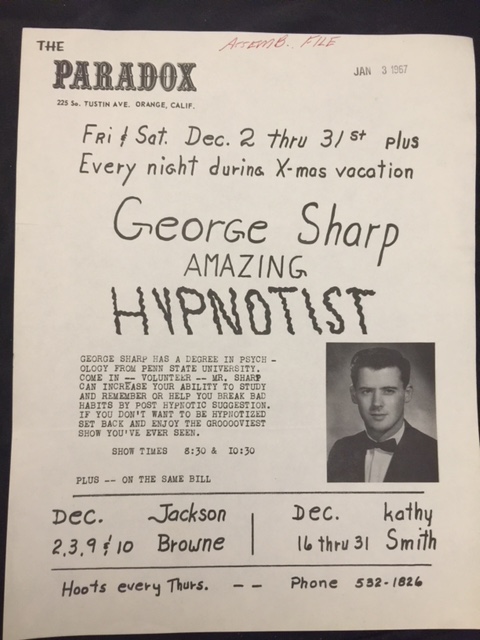 THE
ATTEMB. FILE
PARADOX
JAN 3 1967
225 So. TUSTIN AVE. ORANGE, CALIF.
FRi & Sat. Dec. 2 thru 31st plus
Every night during X-mas vacation
George Sharp
AMAZING
HYPNOTIST
GEORGE SHARP HAS A DEGREE IN PSYCH -
OLOGY FROM PENN STATE UNIVERSITY.
COME IN -- VOLUNTEER -- MR. SHARP
CAN INCREASE YOUR ABILITY TO STUDY
AND REMEMBER OR HELP YOU BREAK BAD
HABITS BY POST HYPNOTIC SUGGESTION.
IF YOU DON'T WANT TO BE HYPNOTIZED
SET BACK AND ENJOY THE GROOOOVIEST
SHOW YOU'VE EVER SEEN.
SHOW TIMES 8:30 & 10:30
PLUS -- ON THE SAME BILL
Dec. Jackson
2,3,9 & 10 Browne
Dec. kathy
16 thru 31 Smith
Hoots every Thurs. -- Phone 532-1826